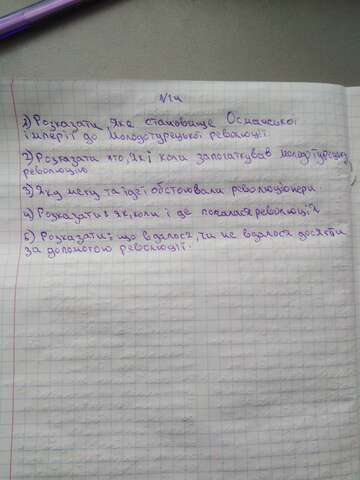 №14
1) Розказати, яке становище Османської
імперії до Молодотурецької революції
2) Розказати хто, як і коли започаткував молодотурецьку
революцію
3) Яку мету та ідеї обстоювали революціонери
4) Розказати: як, коли і де почалася революція
5) Розказати: що вдалося, чи не вдалося досягти
за допомогою революції.